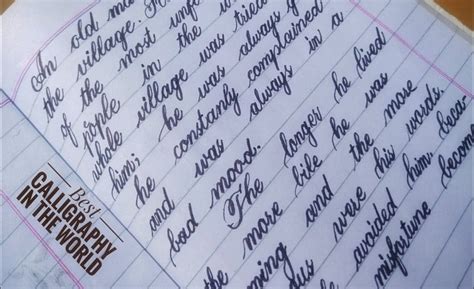 An old ma
the village. H
of the most unfo
people in the w
whole village was tired
him; he was always g
he constanly complained
was always in a
bad mood.
The longer he lived
the more bile he was
and the more
were his words.
avoided him, beca
misfortune becom
Best
CALLIGRAPHY
IN THE WORLD